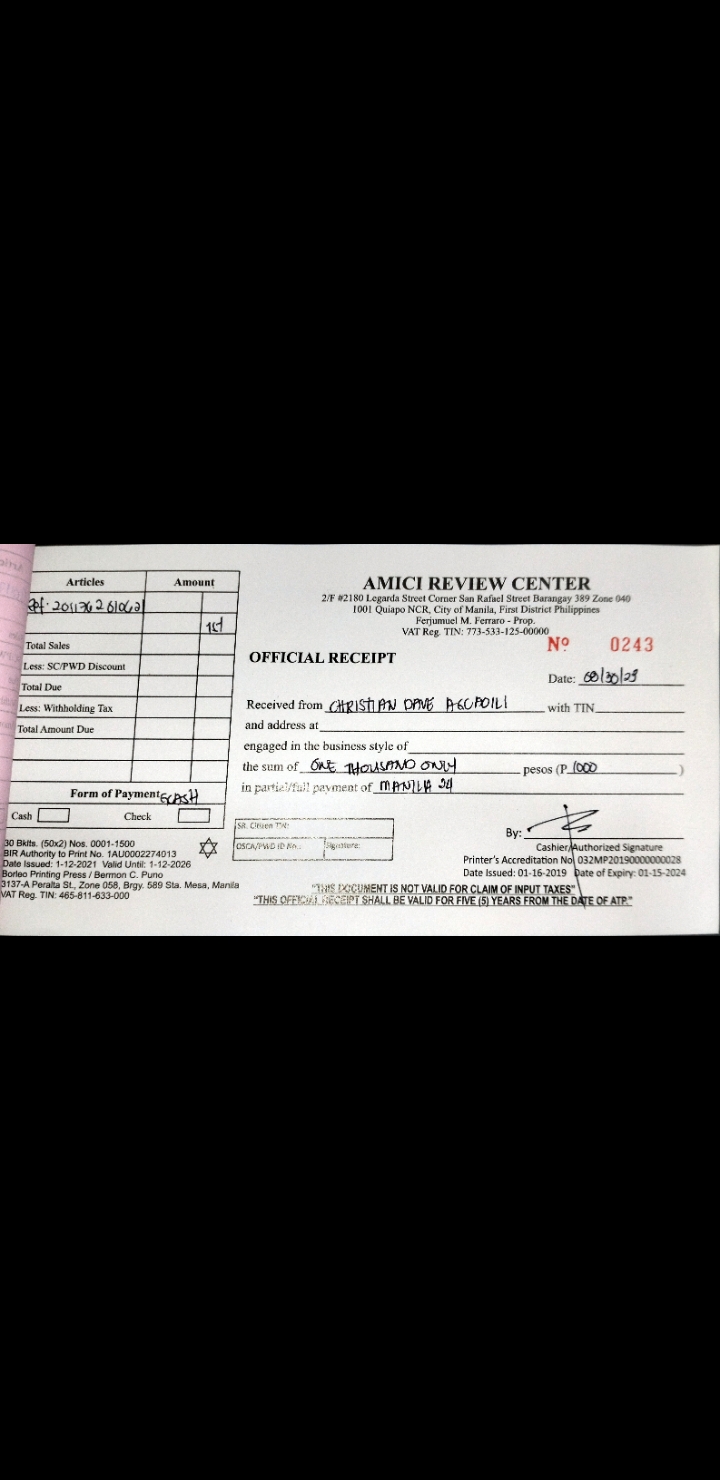 Articles Amount
Ref. 2011762610621
1st
Total Sales
Less: SC/PWD Discount
Total Due
Less: Withholding Tax
Total Amount Due
Form of Payment GCASH
Cash Check
30 Bklts. (50x2) Nos. 0001-1500
BIR Authority to Print No. 1AU0002274013
Date Issued: 1-12-2021 Valid Until: 1-12-2026
Borleo Printing Press / Bermon C. Puno
3137-A Peralta St., Zone 058, Brgy. 589 Sta. Mesa, Manila
VAT Reg. TIN: 465-811-633-000
AMICI REVIEW CENTER
2/F #2180 Legarda Street Corner San Rafael Street Barangay 389 Zone 040
1001 Quiapo NCR, City of Manila, First District Philippines
Ferjumuel M. Ferraro - Prop.
VAT Reg. TIN: 773-533-125-00000
Nº 0243
OFFICIAL RECEIPT
Date: 08/30/23
Received from CHRISTIAN DAVE AGCAOILI with TIN
and address at
engaged in the business style of
the sum of ONE THOUSAND ONLY pesos (P 1000 )
in partial/full payment of MANILA 24
SR. Citizen TIN:
OSCA/PWD ID No.: Signature:
By:
Cashier/Authorized Signature
Printer's Accreditation No. 032MP20190000000028
Date Issued: 01-16-2019 Date of Expiry: 01-15-2024
"THIS DOCUMENT IS NOT VALID FOR CLAIM OF INPUT TAXES"
"THIS OFFICIAL RECEIPT SHALL BE VALID FOR FIVE (5) YEARS FROM THE DATE OF ATP."